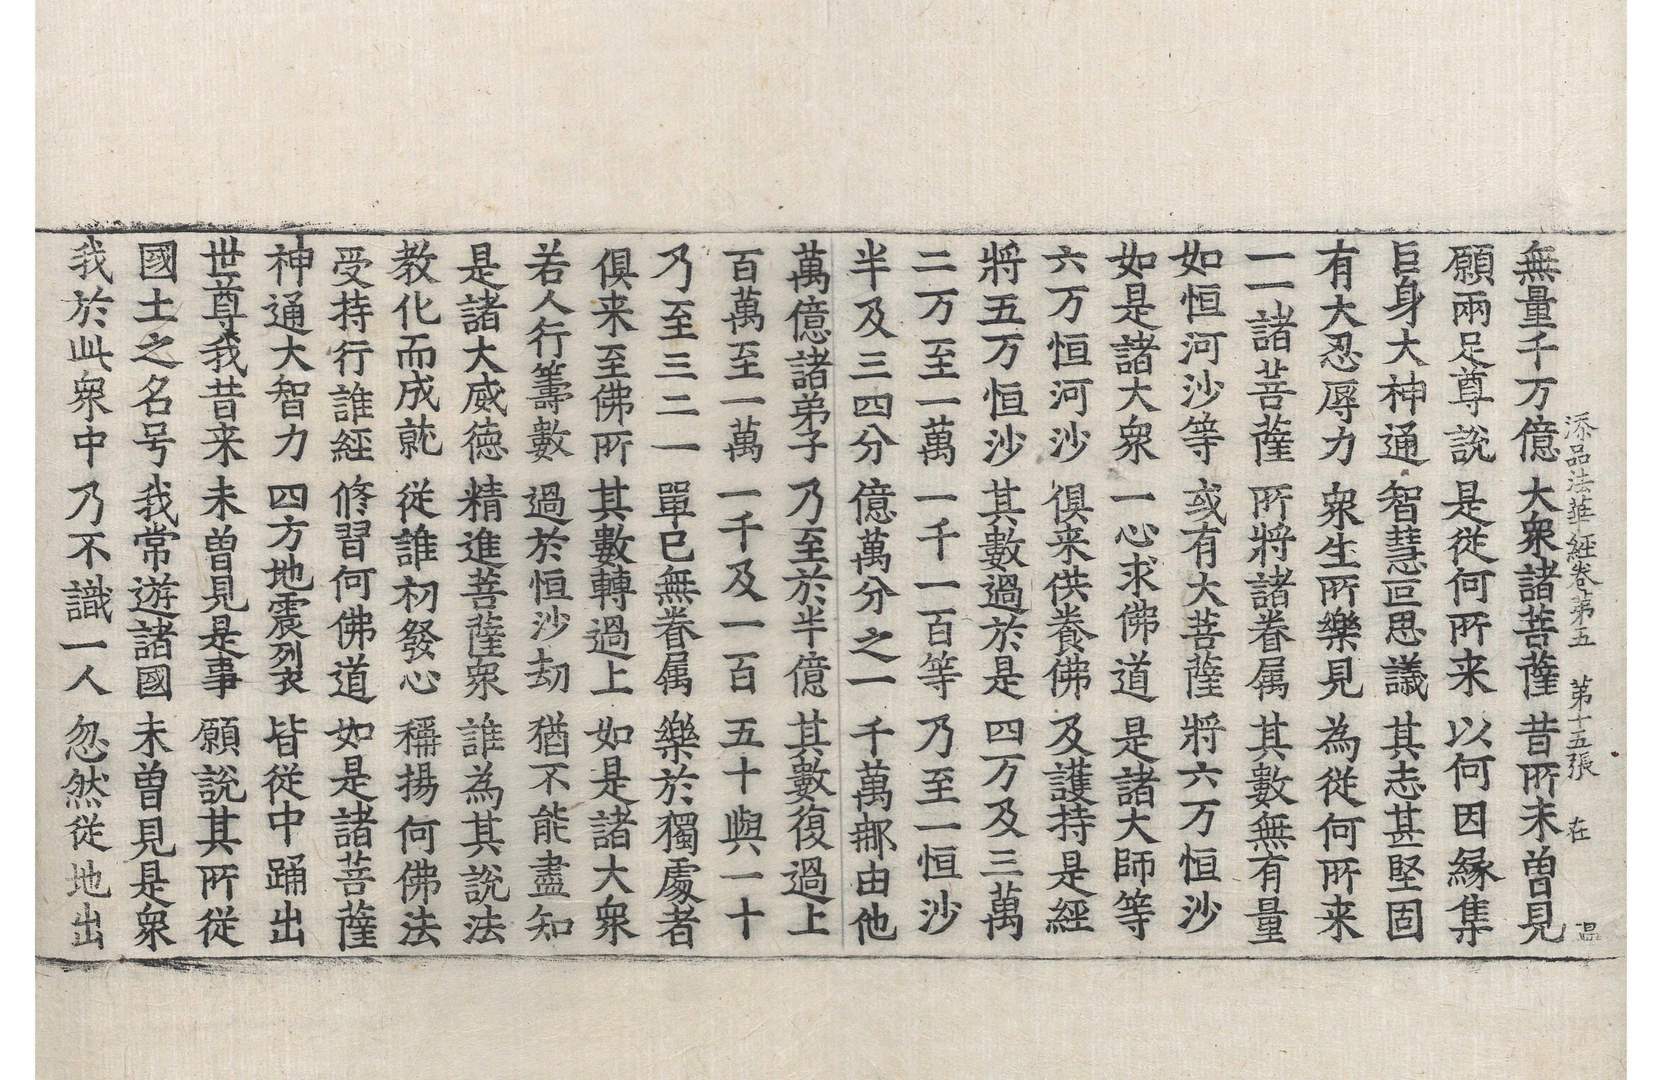 添品法華經卷第五　第十五張　在　温
無量千万億　大衆諸菩薩　昔所未曾見
願兩足尊說　是從何所来　以何因縁集
巨身大神通　智慧叵思議　其志甚堅固
有大忍辱力　衆生所樂見　為從何所来
一一諸菩薩　所將諸眷属　其數無有量
如恒河沙等　或有大菩薩　將六万恒沙
如是諸大衆　一心求佛道　是諸大師等
六万恒河沙　俱来供養佛　及護持是經
將五万恒沙　其數過於是　四万及三萬
二万至一萬　一千一百等　乃至一恒沙
半及三四分　億萬分之一　千萬那由他
萬億諸弟子　乃至於半億　其數復過上
百萬至一萬　一千及一百　五十與一十
乃至三二一　單己無眷属　樂於獨處者
俱来至佛所　其數轉過上　如是諸大衆
若人行籌數　過於恒沙劫　猶不能盡知
是諸大威徳　精進菩薩衆　誰為其說法
教化而成就　從誰初發心　稱揚何佛法
受持行誰經　修習何佛道　如是諸菩薩
神通大智力　四方地震裂　皆從中踊出
世尊我昔来　未曾見是事　願說其所從
國土之名号　我常遊諸國　未曾見是衆
我於此衆中　乃不識一人　忽然從地出